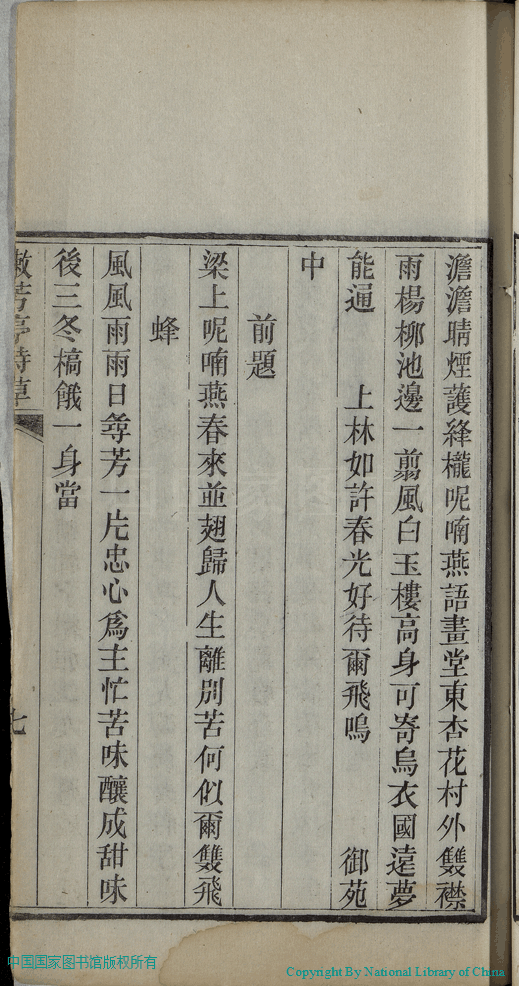 澹澹晴煙護絳櫳呢喃燕語畫堂東杏花村外雙襟
雨楊柳池邊一翦風白玉樓高身可寄烏衣國遠夢
能通 上林如許春光好待爾飛鳴 御苑
中
前題
梁上呢喃燕春來並翅歸人生離別苦何似爾雙飛
蜂
風風雨雨日尋芳一片忠心爲主忙苦味釀成甜味
後三冬槁餓一身當
漱芳亭詩草
七
中国国家图书馆版权所有
Copyright By National Library of China